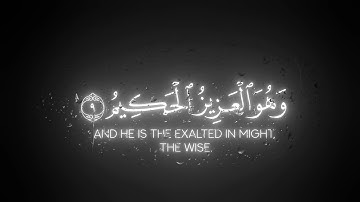 وَهُوَ ٱلْعَزِيزُ ٱلْحَكِيمُ ٩
AND HE IS THE EXALTED IN MIGHT,
THE WISE.